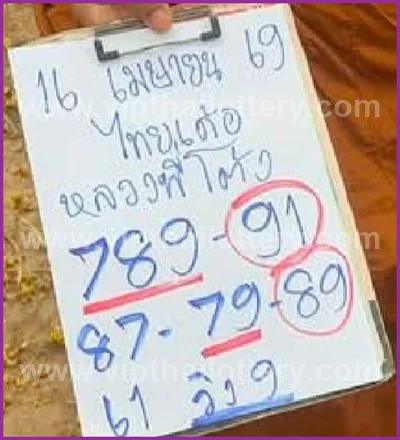 16 เมษายน 69
ไทยเด้อ
หลวงพี่โต้ง
789-91
87-79-89
61 วิ่ง 9
www.vipthailottery.com
www.vipthailottery.com
www.vipthailottery.com